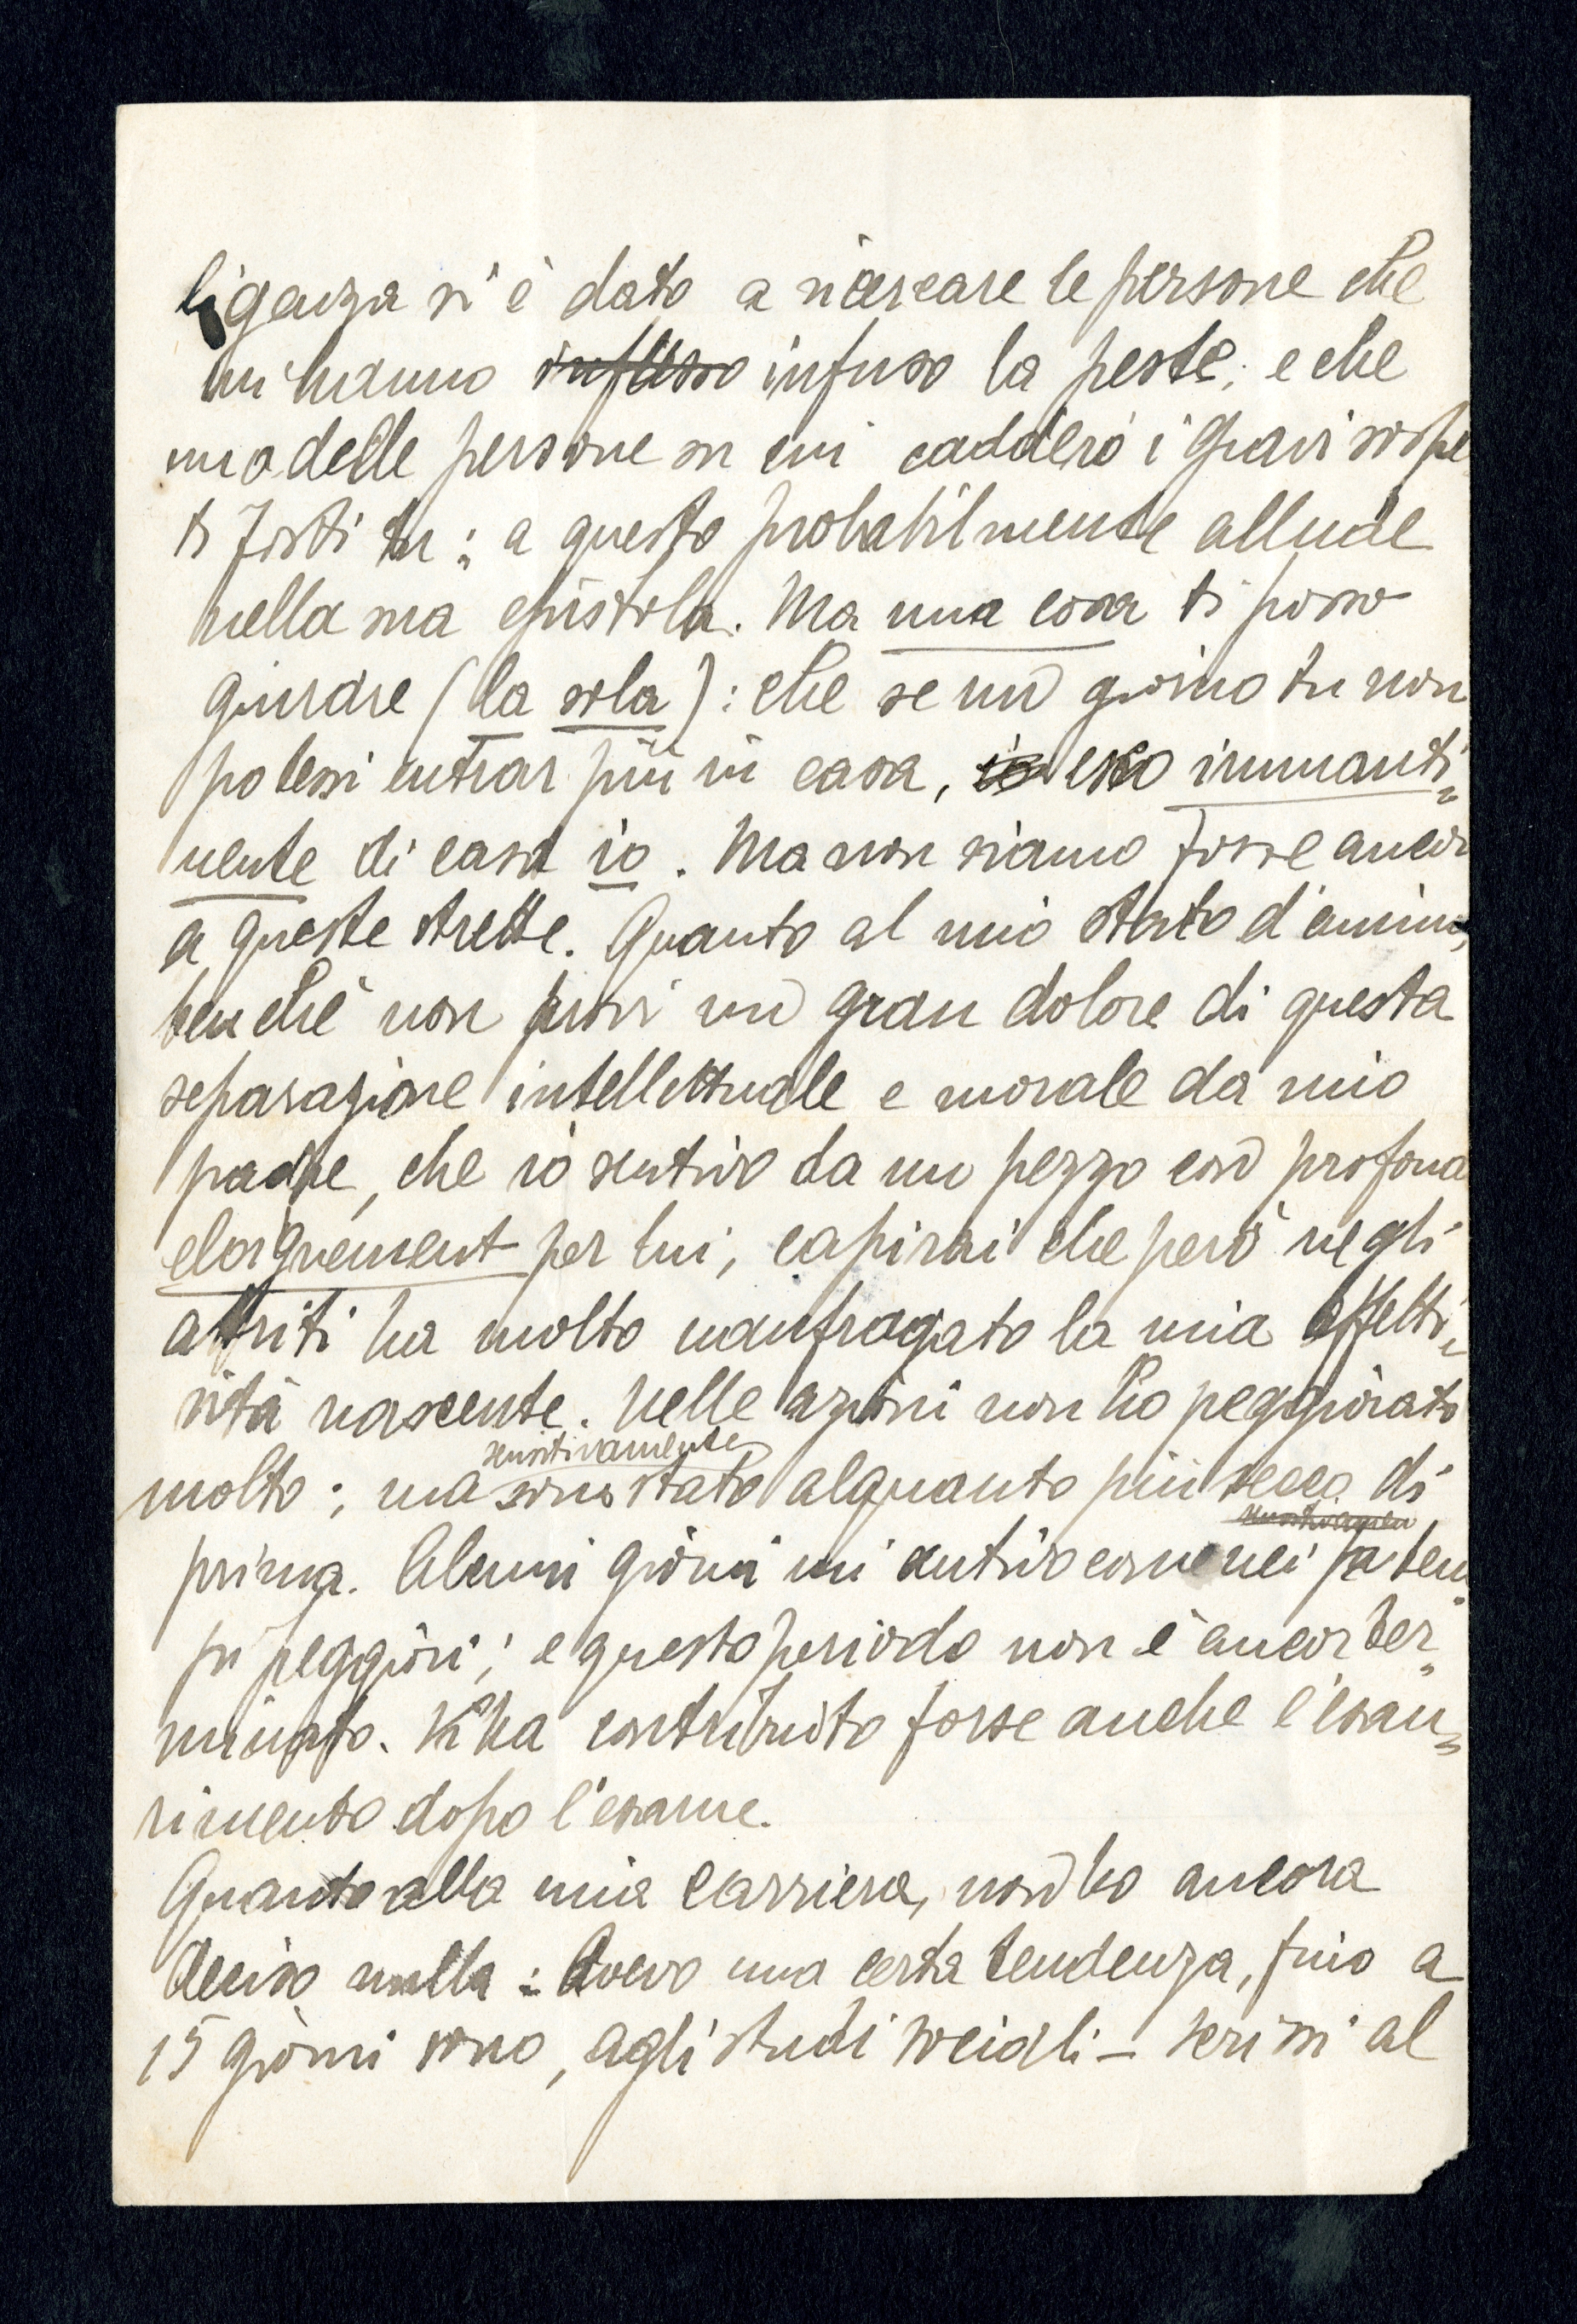 ligenza si è dato a ricercare le persone che
mi hanno infusso infuso la peste; e che
una delle persone su cui caddero i gravi sospe
ti fosti tu: a questo probabilmente allude
nella sua epistola. Ma una cosa ti posso
giurare (la sola): che se un giorno tu non
potessi entrar più in casa, io esco immanti=
nente di casa io. Ma non siamo forse ancor
a queste strette. Quanto al mio stato d'animo,
benché non provi un gran dolore di questa
separazione intellettuale e morale da mio
padre, che io sentivo da un pezzo così profond
eloignement per lui, capirai che però negli
attriti ha molto naufragato la mia affetti=
vità nascente. Nelle azioni non ho peggiorato
sensitivamente
molto; ma sono stato alquanto più secco di
sensitivamen
prima. Alcuni giorni mi sentivo come nei tem=
pi peggiori; e questo periodo non è ancor ter=
minato. Vi ha contribuito forse anche l'esau=
rimento dopo l'esame.
Quanto alla mia carriera, non ho ancora
deciso nulla: Avevo una certa tendenza, fino a
15 giorni sono, agli studi sociali - scrissi al